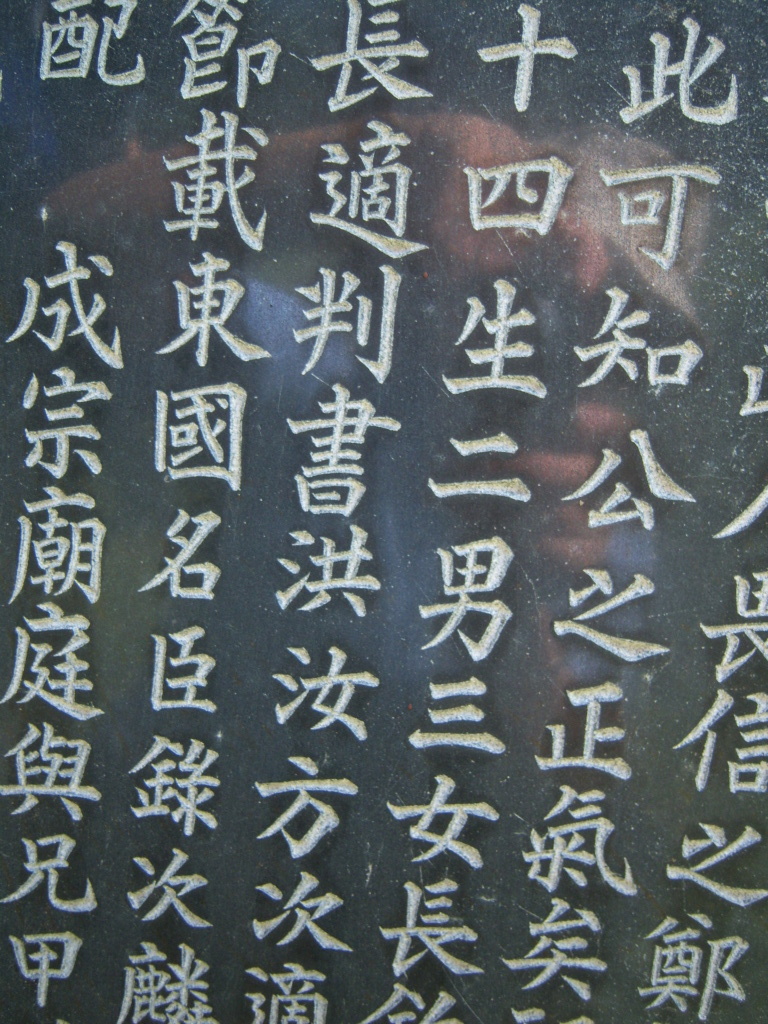 人畏信之鄭
此可知公之正氣矣
十四生二男三女長
長適判書洪汝方次適
節載東國名臣錄次麟
配 成宗廟庭與兄甲